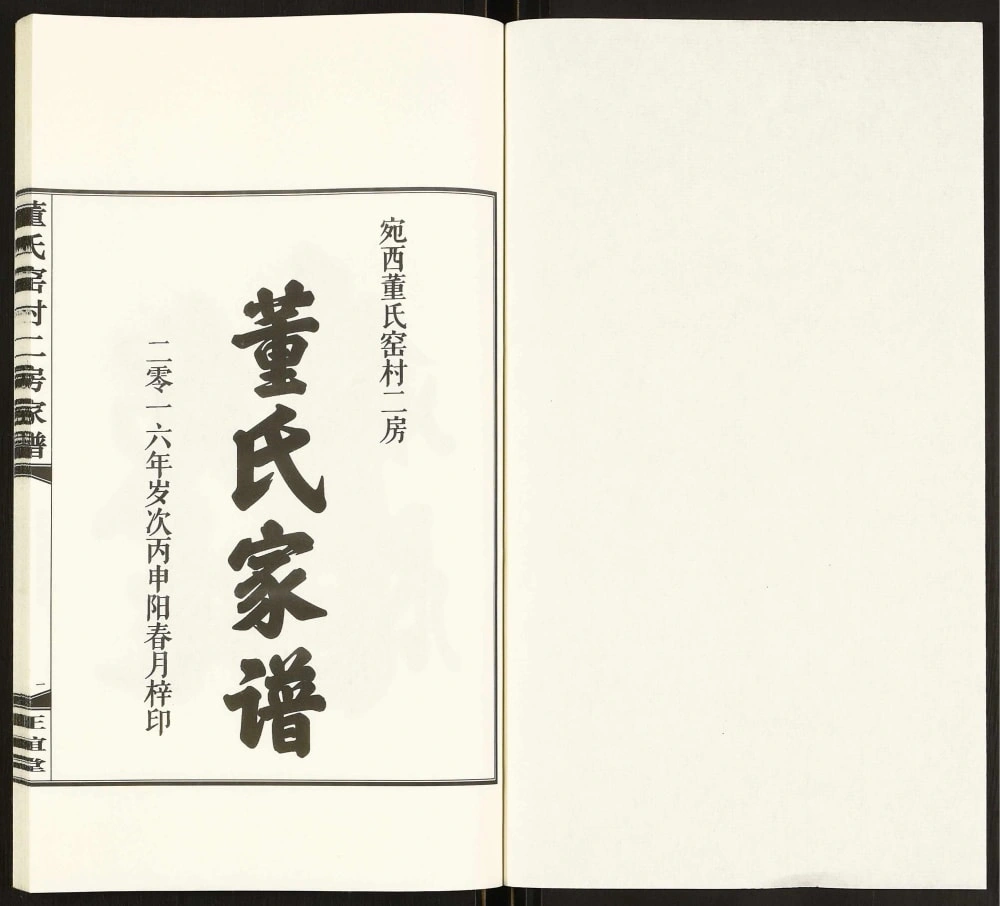 宛西董氏窑村二房
董氏家谱
二零一六年岁次丙申阳春月梓印
董氏窑村二房家谱
一
正谊堂